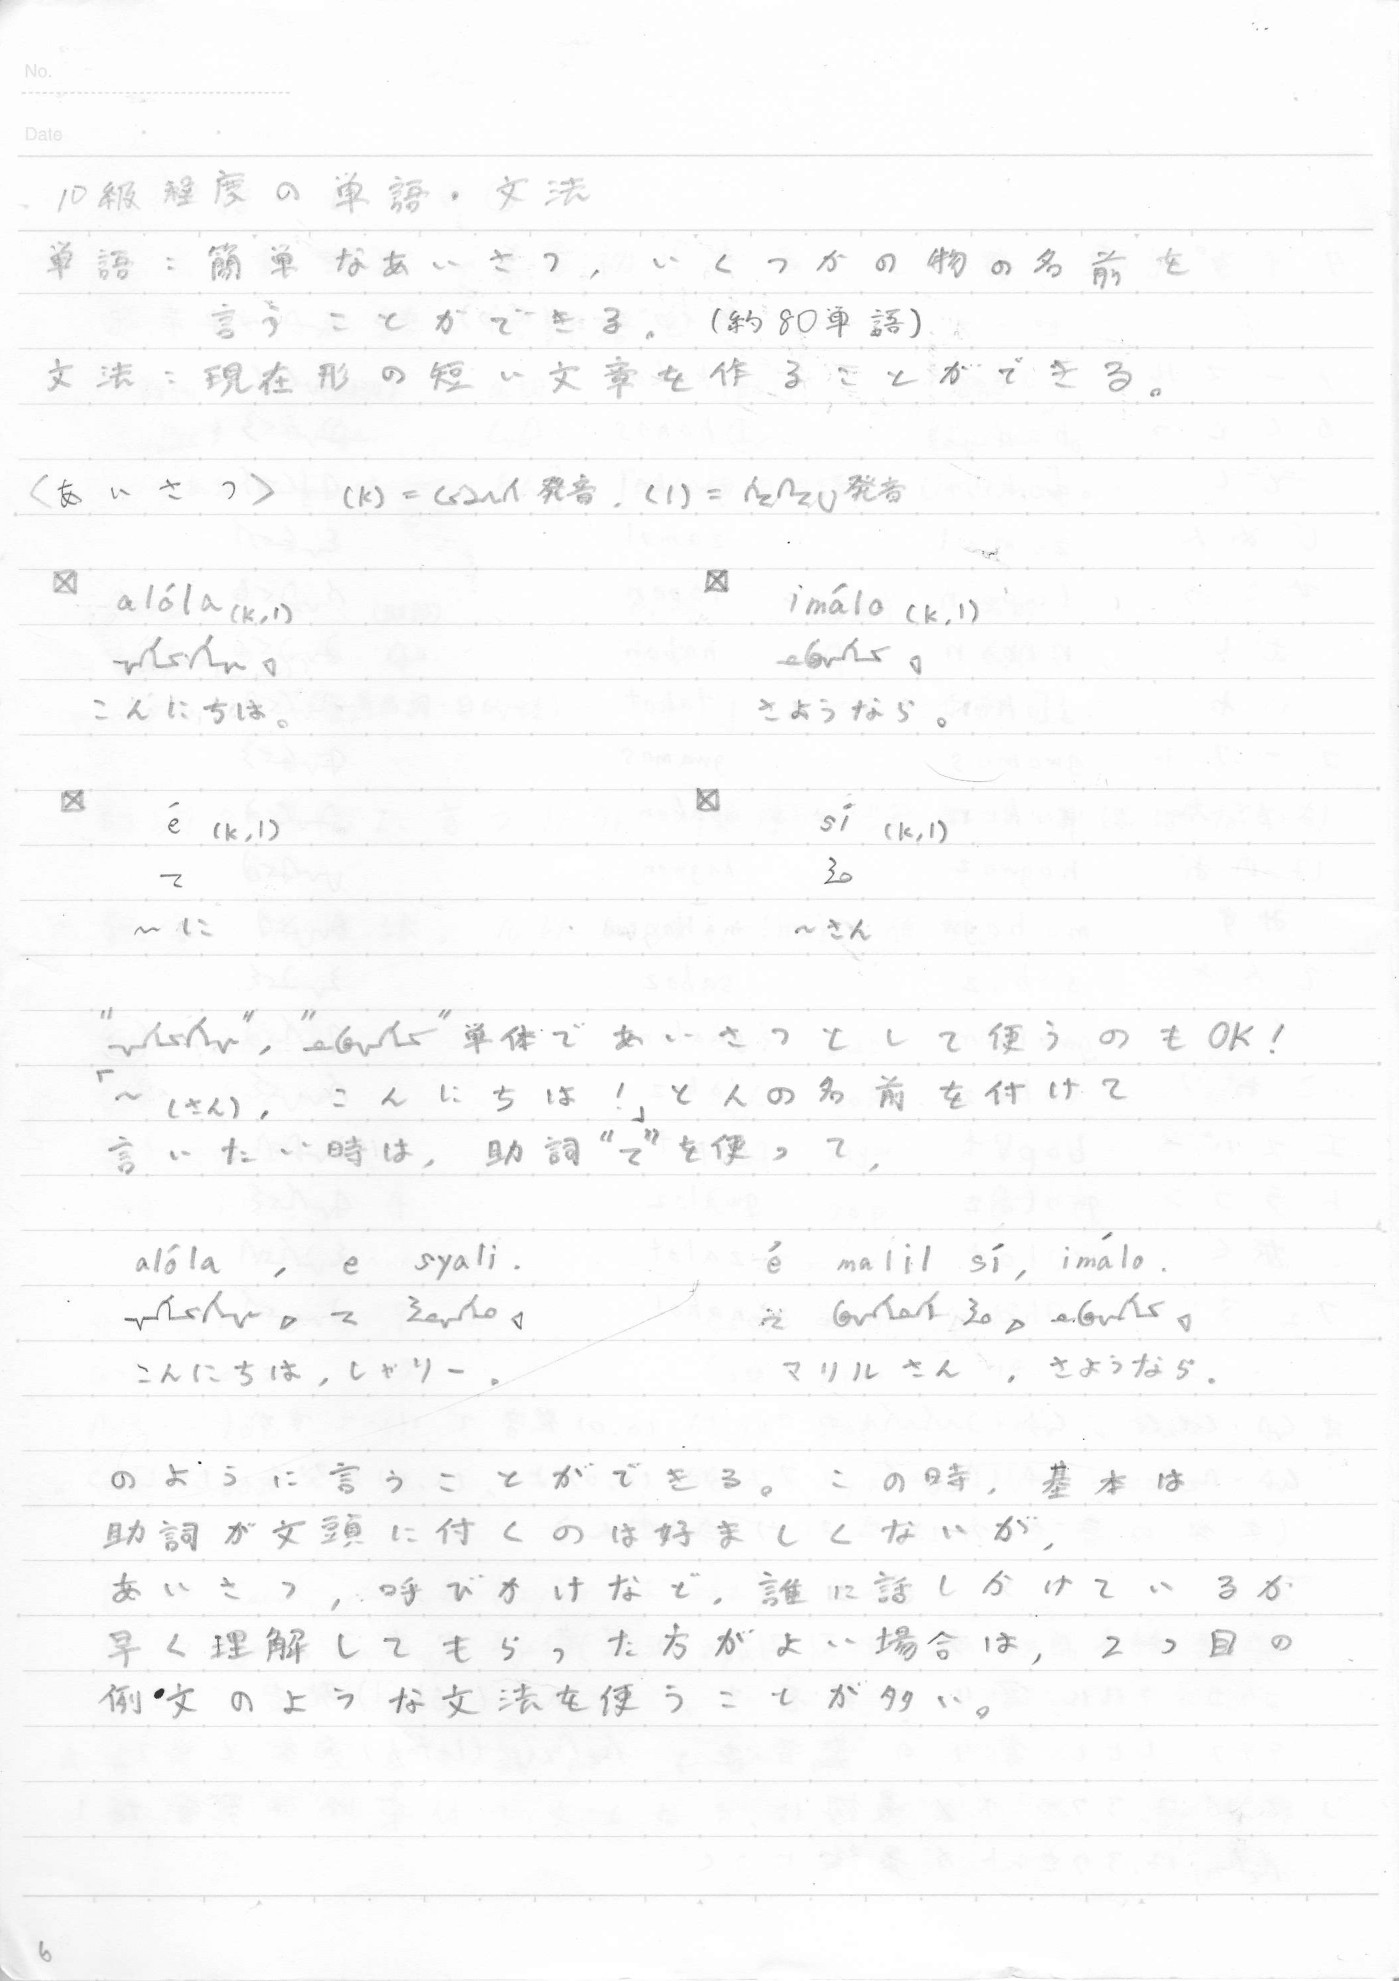 No.
Date
10級程度の単語・文法
単語：簡単なあいさつ，いくつかの物の名前を
言うことができる。(約80単語)
文法：現在形の短い文章を作ることができる。
〈あいさつ〉 (k)= 発音．(l)= 発音
alóla (k,l) imálo (k,l)
こんにちは。 さようなら。
é (k,l) sí (k,l)
〜に 〜さん
単体であいさつとして使うのもOK!
「〜(さん)，こんにちは!」と人の名前を付けて
言いたい時は，助詞 を使って，
alóla , e syali. é malil sí, imálo.
こんにちは，しゃりー． マリルさん ，さようなら．
のように言うことができる。この時，基本は
助詞が文頭に付くのは好ましくないが，
あいさつ，呼びかけなど，誰に話しかけているか
早く理解してもらった方がよい場合は，2つ目の
例文のような文法を使うことが多い。
6